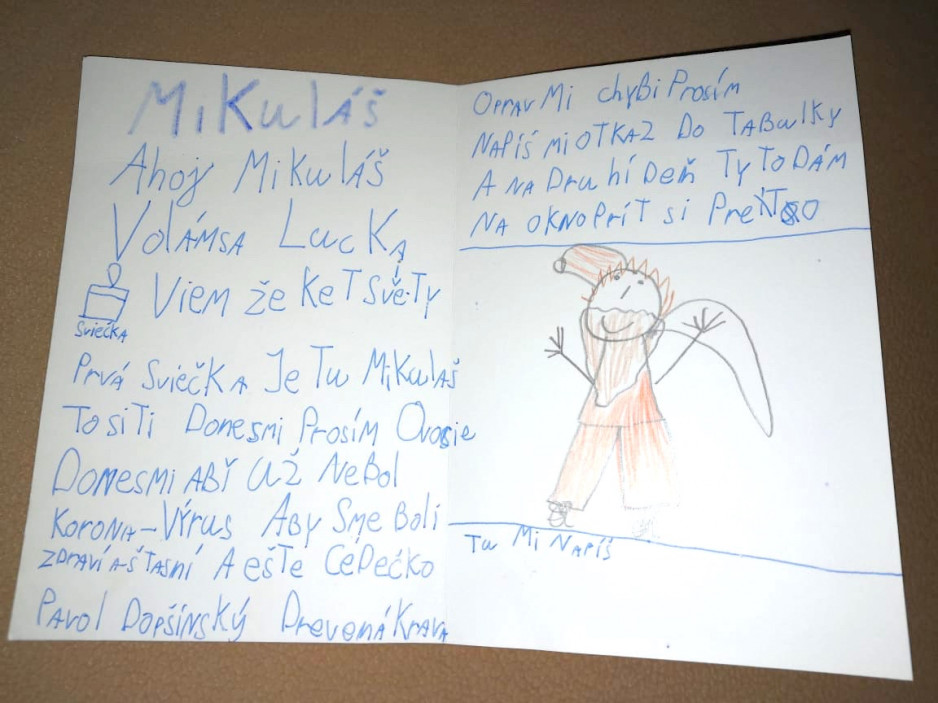 Mikuláš
Ahoj Mikuláš
Volámsa Lucka
Viem že Ket Svety
Sviečka
Prvá Sviečka Je Tu Mikulaš
To si Ti Donesmi Prosím Ovosie
Donesmi ABĬ Už Nebol
Korona-Výrus Aby Sme Boli
Zdraví A-Štasní A ešte Cédečko
Pavol Dopšínský Drevená Krava
Oprav Mi chyBi Prosím
Napíš mi OTKAZ Do Tabulky
A na Druhí Deň Ty To Dám
Na okno Prít si Pre
Tu Mi Napíš